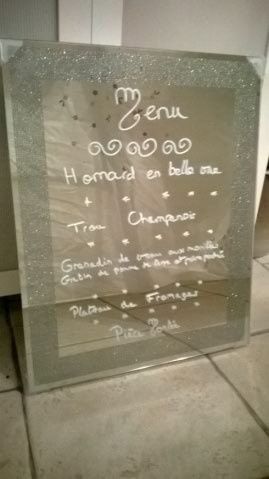 Menu
Homard en belle vue
Trou Champenois
Grenadin de veau aux morilles
Gratin de pomme de terre et
Plateau de Fromages
Pièce Montée